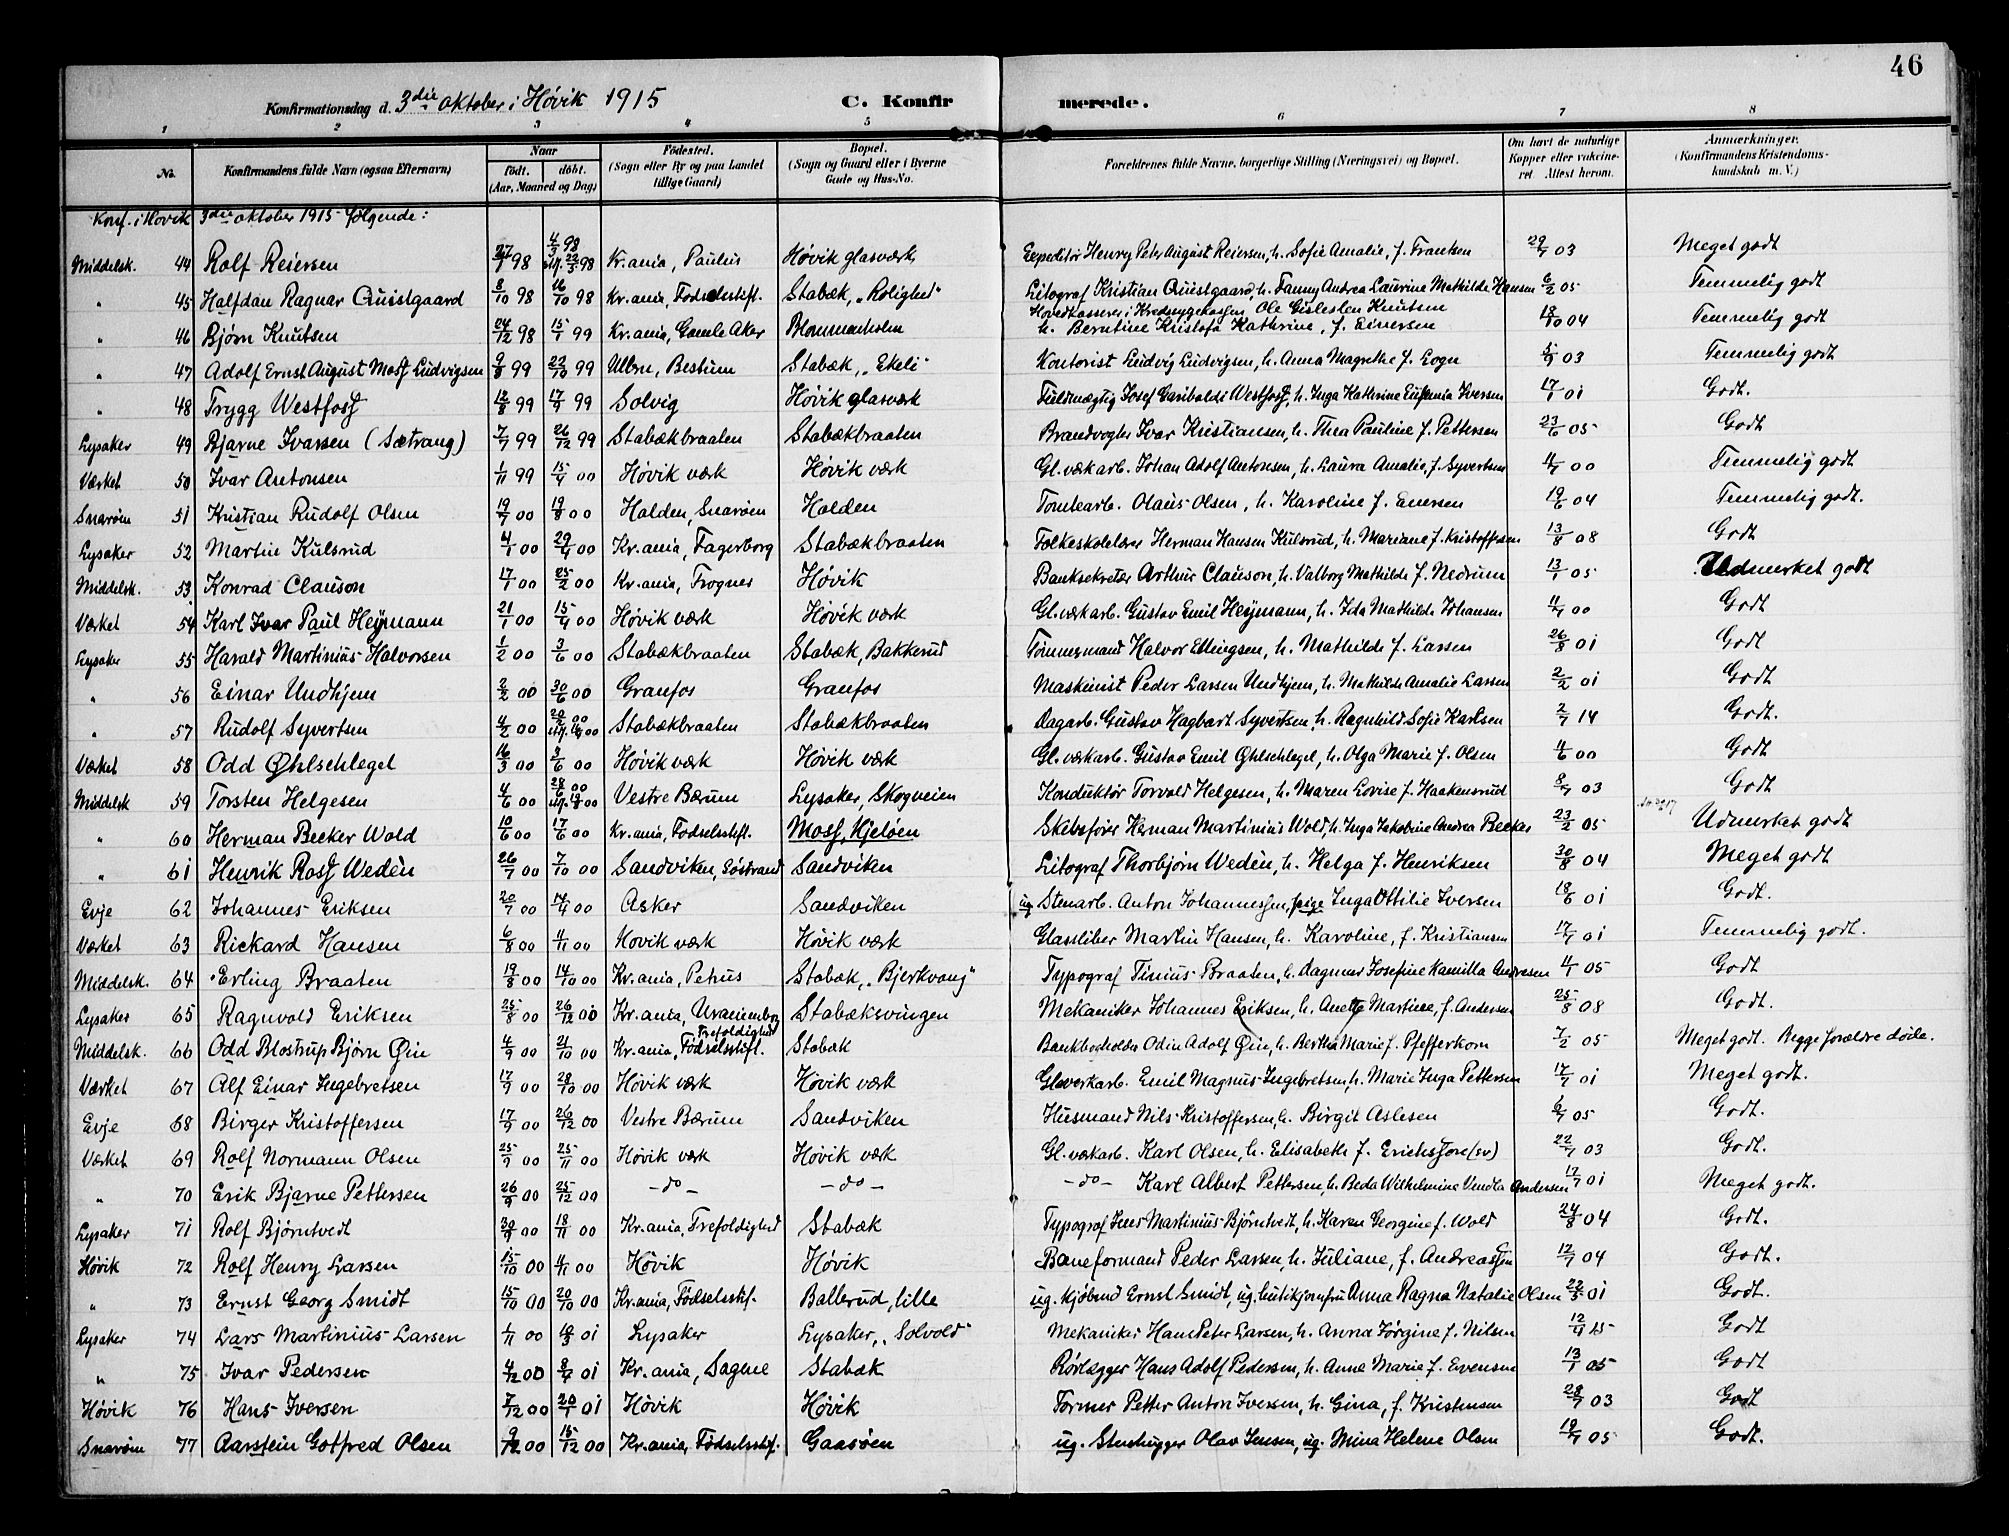 46
Konfirmationsdag d. 3die oktober i Høvik 1915 C. Konfirmerede.
1 2 3 4 5 6 7 8
No. Konfirmandens fulde Navn (ogsaa Efternavn) Naar født. døbt. (Aar, Maaned og Dag) Fødested. (Sogn eller By og paa Landet tillige Gaard) Bopæl. (Sogn og Gaard eller i Byerne Gade og Hus-No. Forældrenes fulde Navne, borgerlige Stilling (Næringsvei) og Bopæl. Om havt de naturlige Kopper eller vaccineret. Attest herom. Anmærkninger. (Konfirmandens Kristendomskundskab m. V.)
Konf. i Høvik 3die oktober 1915 følgende:
Middelsk. 44 Rolf Reiersen 27/1 98 4/3 98 22/5 98 Kr.ania, Paulus Høvik glasværk Expeditør Henry Peter August Reiersen, h. Sofie Amalie, f. Frantsen 29/7 03 Meget godt
" 45 Halfdan Ragnar Quistgaard 8/10 98 16/10 98 Kr.ania, Fødselsstift. Stabæk, "Rolighed" Litograf Kristian Quistgaard, h. Fanny Andrea Laurine Mathilde Hansen 6/2 05 Temmelig godt
" 46 Bjørn Knutsen 24/12 98 15/1 99 Kr.ania, Gamle Aker Blommenholm Hovedkasserer i Kredsygekassen Ole Gislesen Knutsen h. Berntine Kristofa Kathrine, f. Einersen 18/10 04 Temmelig godt
" 47 Adolf Ernst August Moss Ludvigsen 9/8 99 22/10 99 Ullern, Bestum Stabæk, "Ekeli" Kontorist Ludvig Ludvigsen, h. Anna Magrethe f. Gogn 5/9 03 Temmelig godt
" 48 Trygg Westfoss 12/8 99 17/9 99 Solvig Høvik glasværk Fuldmægtig Josef Garibaldi Westfoss, h. Inga Kathrine Eufemia Iversen 17/1 01 Godt.
Lysaker 49 Bjarne Ivarsen (Sætrang) 7/7 99 26/12 99 Stabækbraaten Stabækbraaten Brandvogter Ivar Kristiansen, h. Thea Pauline f. Pettersen 23/6 05 Godt
Værket 50 Ivar Antonsen 1/11 99 15/4 00 Høvik værk Høvik værk Gl.værkarb. Johan Adolf Antonsen, h. Laura Amalie, f. Syvertsen 4/7 00 Temmelig godt
Snarøen 51 Kristian Rudolf Olsen 19/7 00 19/8 00 Halden, Snarøen Halden Tomtearb. Olaus Olsen, h. Karoline f. Enersen 19/6 04 Temmelig godt.
Lysaker 52 Martin Kulsrud 4/1 00 29/4 00 Kr.ania, Fagerborg Stabækbraaten Folkeskolelærer Herman Hansen Kulsrud, h. Mariane f. Kristoffersen 13/8 08 Godt
Middelsk. 53 Konrad Clauson 17/1 00 25/2 00 Kr.ania, Frogner Høvik Banksekretær Arthur Clauson, h. Valborg Mathilde f. Nedrum 13/1 05 Udmerket godt
Værket 54 Karl Ivar Paul Heymann 21/1 00 15/4 00 Høvik værk Høvik værk Gl.værkarb. Gustav Emil Heymann, h. Ida Mathilde Johansen 11/7 00 Godt
Lysaker 55 Harald Martinius Halvorsen 1/2 00 3/6 00 Stabækbraaten Stabæk, Bakkerud Tømmermand Halvor Ellingsen, h. Mathilde f. Larsen 26/8 01 Godt
" 56 Einar Undhjem 2/2 00 30/6 00 Granfos Granfos Maskinist Peder Larsen Undhjem, h. Mathilde Amalie Larsen 2/2 01 Godt
" 57 Rudolf Syvertsen 4/2 00 20/2 00 Stabækbraaten Stabækbraaten Dagarb. Gustav Hagbart Syvertsen, h. Ragnhild Sofie Karlsen 2/7 14 Godt.
Værket 58 Odd Øhlschlegel 16/3 00 3/6 00 Høvik værk Høvik værk Gl.værkarb. Gustav Emil Øhlschlegel, h. Olga Marie f. Olsen 4/6 00 Godt
Middelsk 59 Torsten Helgesen 4/6 00 28/6 00 Vestre Bærum Lysaker, Skogveien Konduktør Torvald Helgesen, h. Maren Lovise f. Haakensrud 8/7 03 Godt
" 60 Herman Becker Wold 10/6 00 17/6 00 Kr.ania, Fødselsstift. Moss, Hjeløen Skibsfører Herman Martinius Wold, h. Inga Jakobine Andrea Becker 23/2 05 Udmerket godt
" 61 Henrik Ross Wedén 26/7 00 7/10 00 Sandviken, Søstrand Sandviken Litograf Thorbjørn Wedén, h. Helga f. Henriksen 30/8 04 Meget godt
Evje 62 Johannes Eriksen 20/7 00 14/4 00 Asker Sandviken ug Stenarb. Anton Johannessen, pige Inga Ottilie Iversen 18/6 01 Godt.
Værket 63 Rickard Hansen 6/8 00 4/11 00 Høvik værk Høvik værk Glassliber Martin Hansen, h. Karoline, f. Kristiansen 17/7 01 Temmelig godt.
Middelsk. 64 Erling Braaten 19/8 00 14/10 00 Kr.ania, Petrus Stabæk, "Bjerkvang" Typograf Tinius Braaten, h. Dagmar Josefine Kamilla Andresen 4/1 05 Godt
Lysaker 65 Ragnvald Eriksen 25/8 00 26/12 00 Kr.ania, Uranienborg Stabæksvingen Mekaniker Johannes Eriksen, h. Anette Martine, f. Andersen 25/8 08 Godt.
Middelsk. 66 Odd Blostrup Bjørn Øin 4/9 00 21/10 00 Kr.ania, Trefoldighed Fødselsstift. Stabæk Bankbokholder Odin Adolf Øin, h. Bertha Marie f. Pfefferkorn 7/2 05 Meget godt. Begge forældre døde.
Værket 67 Alf Einar Ingebretsen 17/9 00 28/10 00 Høvik værk Høvik værk Gl.verkarb. Emil Magnus Ingebretsen, h. Marie Inga Pettersen 17/7 01 Meget godt.
Evje 68 Birger Kristoffersen 17/9 00 26/12 00 Vestre Bærum Sandviken Husmand Nils Kristoffersen, h. Birgit Aslesen 6/7 05 Godt.
Værket 69 Rolf Normann Olsen 25/9 00 25/11 00 Høvik værk Høvik værk Gl.værkarb. Karl Olsen, h. Elisabeth f. Erichsfore (sv) 22/7 03 Godt.
" 70 Erik Bjarne Pettersen 26/9 00 25/12 00 -do- -do- -do- Karl Albert Pettersen, h. Beda Wilhelmine Vendla Andersen 17/7 01 Meget godt.
Lysaker 71 Rolf Bjørntvedt 30/9 00 18/11 00 Kr.ania, Trefoldighed Stabæk Typograf Jens Martinius Bjørntvedt, h. Karen Georgine f. Wold 24/8 04 Godt.
Høvik 72 Rolf Henry Larsen 15/10 00 4/11 00 Høvik Høvik Baneformand Peder Larsen, h. Juliane, f. Andreassen 12/7 04 Godt.
" 73 Ernst Georg Smidt 15/10 00 20/10 00 Kr.ania, Fødselsstif. Ballerud, lille ug. Kjøbmd Ernst Smidt, ug. butikjomfru Anna Ragna Natalie Olsen 22/5 01 Godt.
Lysaker 74 Lars Martinius Larsen 1/11 00 10/3 01 Lysaker Lysaker, "Solvold" Mekaniker Hans Peter Larsen, h. Anna Jørgine f. Nilsen 12/4 15 Godt
" 75 Ivar Pedersen 4/12 00 8/4 01 Kr.ania, Sagene Stabæk Rørlægger Hans Adolf Pedersen, h. Anne Marie f. Evensen 13/1 05 Godt
Høvik 76 Hans Iversen 7/12 00 20/1 01 Høvik Høvik Former Petter Anton Iversen, h. Gina, f. Kristensen 28/7 03 Godt
Snarøen 77 Aarstein Gotfred Olsen 9/12 00 15/12 00 Kr.ania, Fødselsstif. Gaasøen ug. Stenhugger Olav Jensen, ug. Mina Helene Olsen 19/7 05 Godt.